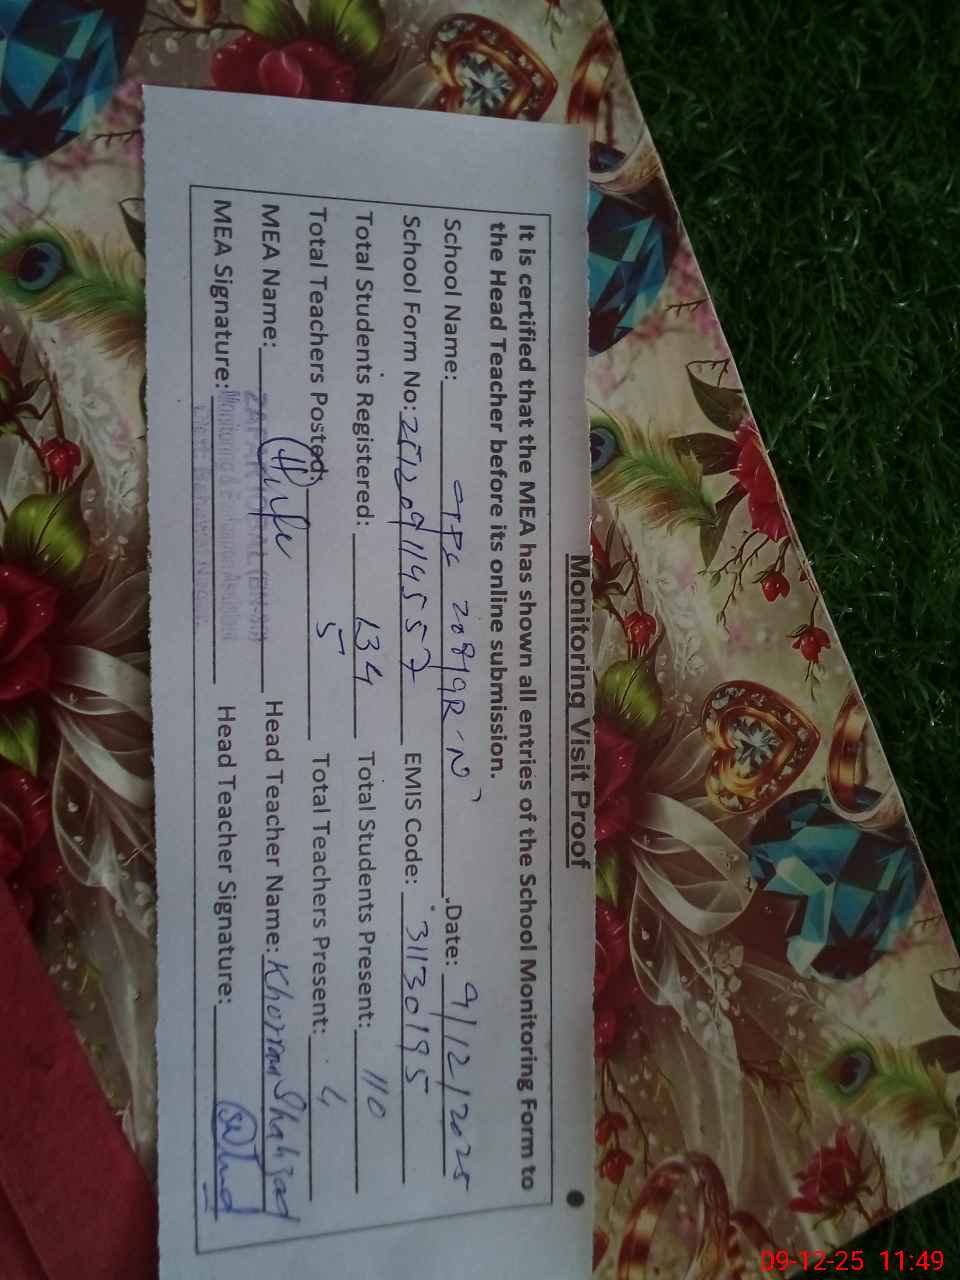 Monitoring Visit Proof
It is certified that the MEA has shown all entries of the School Monitoring Form to
the Head Teacher before its online submission.
School Name: 208/9R-N Date: 9/12/2025
School Form No: EMIS Code: 31130195
Total Students Registered: 134 Total Students Present: 110
Total Teachers Posted: 5 Total Teachers Present: 4
MEA Name: Head Teacher Name: Khurram Shahzad
MEA Signature: Monitoring & Evaluation Assistant Head Teacher Signature:
Distt. Bahawal Nagar.
09-12-25 11:49